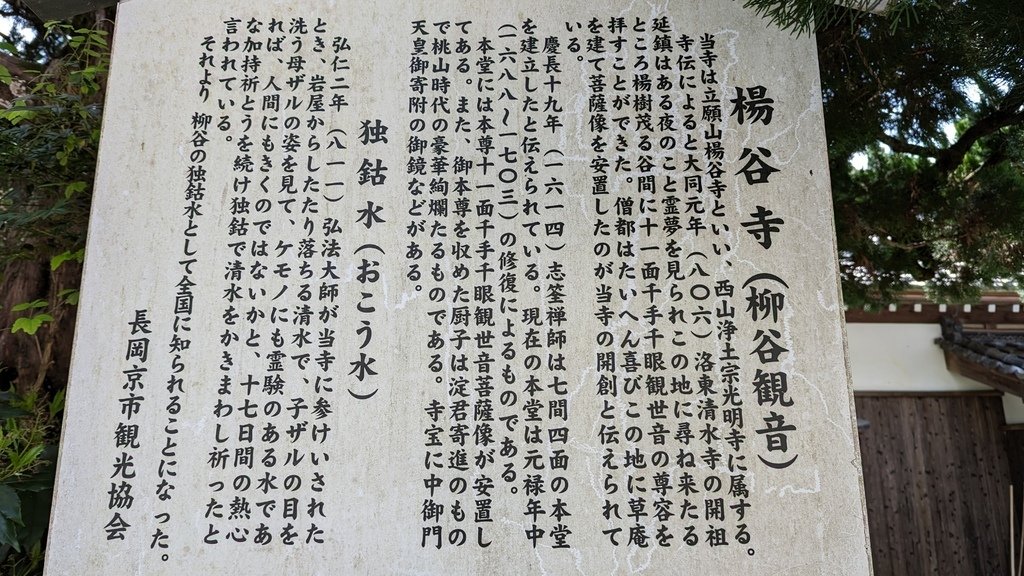 楊谷寺（柳谷観音）
当寺は立願山楊谷寺といい、西山浄土宗光明寺に属する。
寺伝によると大同元年（八〇六）洛東清水寺の開祖
延鎮はある夜のこと霊夢を見られこの地に尋ね来たる
ところ楊樹茂る谷間に十一面千手千眼観世音の尊容を
拝すことができた。僧都はたいへん喜びこの地に草庵
を建て菩薩像を安置したのが当寺の開創と伝えられて
いる。
慶長十九年（一六一四）志筌禅師は七間四面の本堂
を建立したと伝えられている。現在の本堂は元禄年中
（一六八八～一七〇三）の修復によるものである。
本堂には本尊十一面千手千眼観世音菩薩像が安置し
てある。また、御本尊を収めた厨子は淀君寄進のもの
で桃山時代の豪華絢爛たるものである。寺宝に中御門
天皇御寄附の御鏡などがある。
独鈷水（おこう水）
弘仁二年（八一一）弘法大師が当寺に参けいされた
とき、岩屋からしたたり落ちる清水で、子ザルの目を
洗う母ザルの姿を見て、ケモノにも霊験のある水であ
れば、人間にもきくのではないかと、十七日間の熱心
な加持祈とうを続け独鈷で清水をかきまわし祈ったと
言われている。
それより　柳谷の独鈷水として全国に知られることになった。
長岡京市観光協会